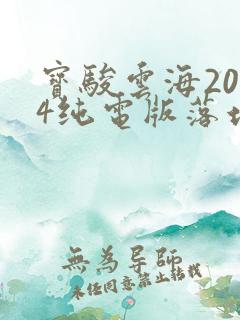 寶駿雲海20
4纯電版落地
無為导師
未经同意禁止转载